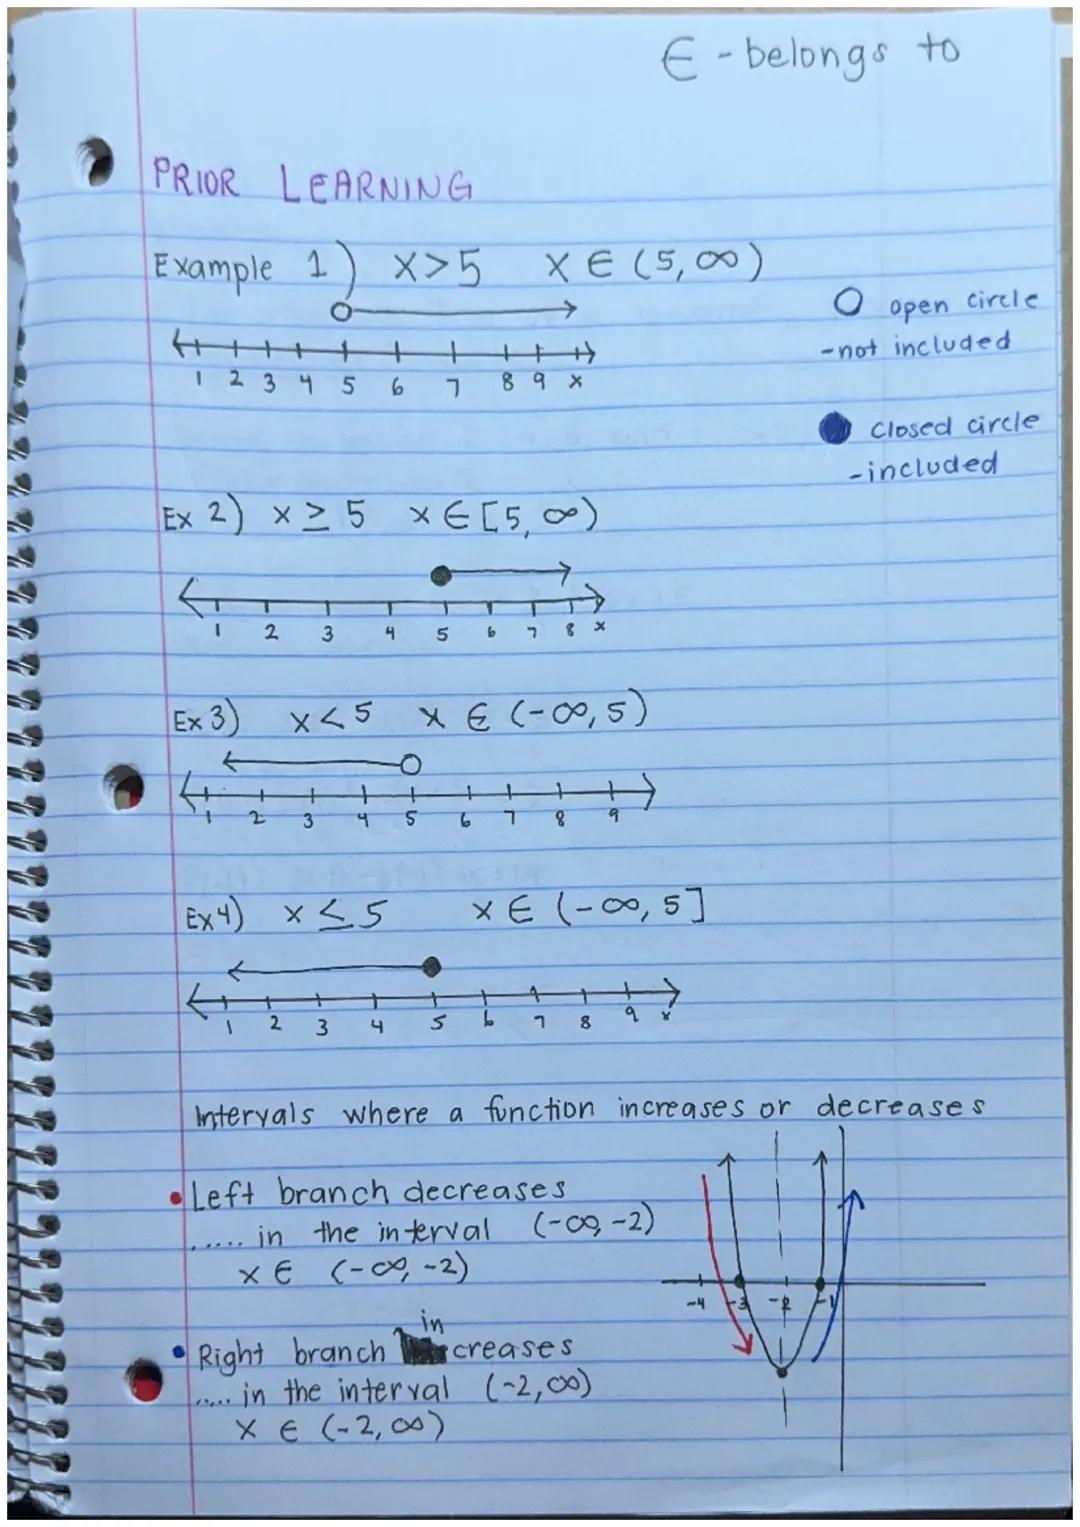 ∈ - belongs to
PRIOR LEARNING
Example 1) x>5 x ∈ (5,∞)
O open circle
-not included
1 2 3 4 5 6 7 8 9 x
closed circle
-included
Ex 2) x ≥ 5 x ∈ [5, ∞)
1 2 3 4 5 6 7 8 x
Ex 3) x < 5 x ∈ (-∞, 5)
1 2 3 4 5 6 7 8 9
Ex 4) x ≤ 5 x ∈ (-∞, 5]
1 2 3 4 5 6 7 8 9 x
Intervals where a function increases or decreases
• Left branch decreases
..... in the interval (-∞, -2)
x ∈ (-∞, -2)
-4 -3 -2 -1
in
• Right branch creases
..... in the interval (-2, ∞)
x ∈ (-2, ∞)